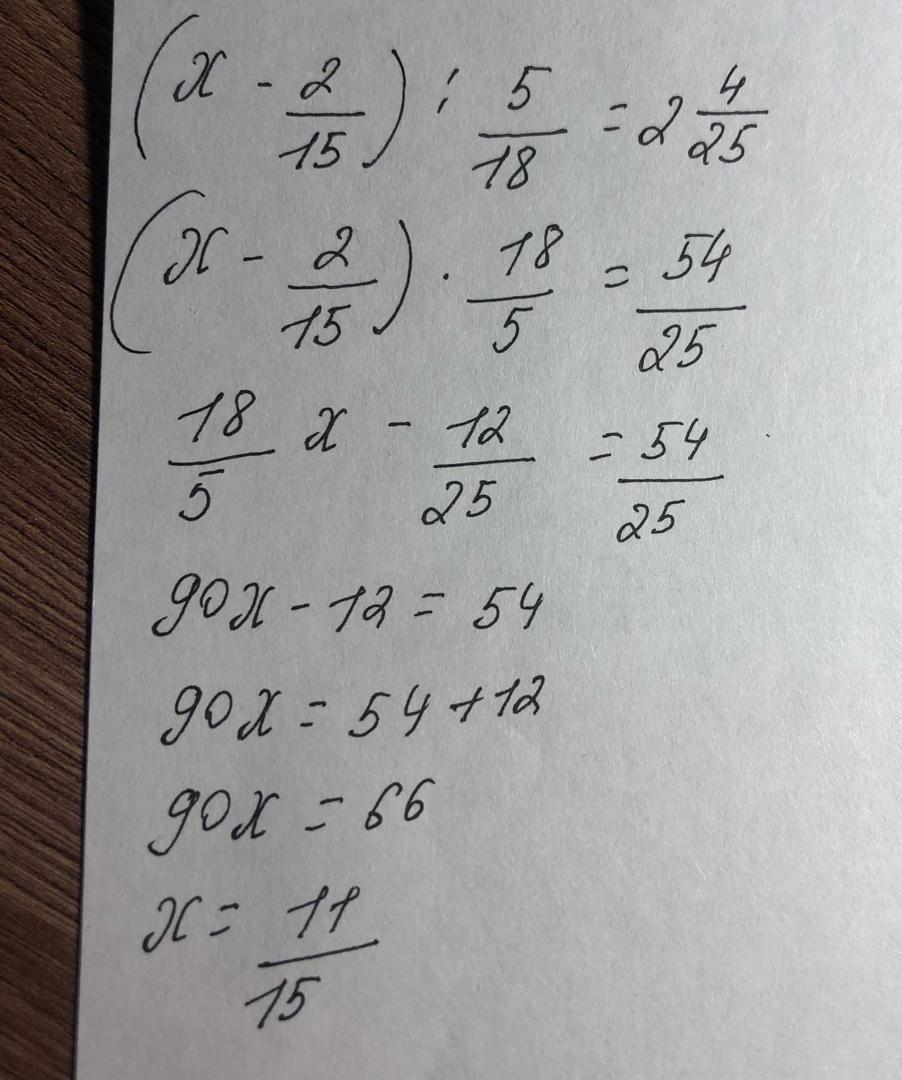 (x - 2/15) : 5/18 = 2 4/25
(x - 2/15) · 18/5 = 54/25
18/5 x - 12/25 = 54/25
90x - 12 = 54
90x = 54 + 12
90x = 66
x = 11/15